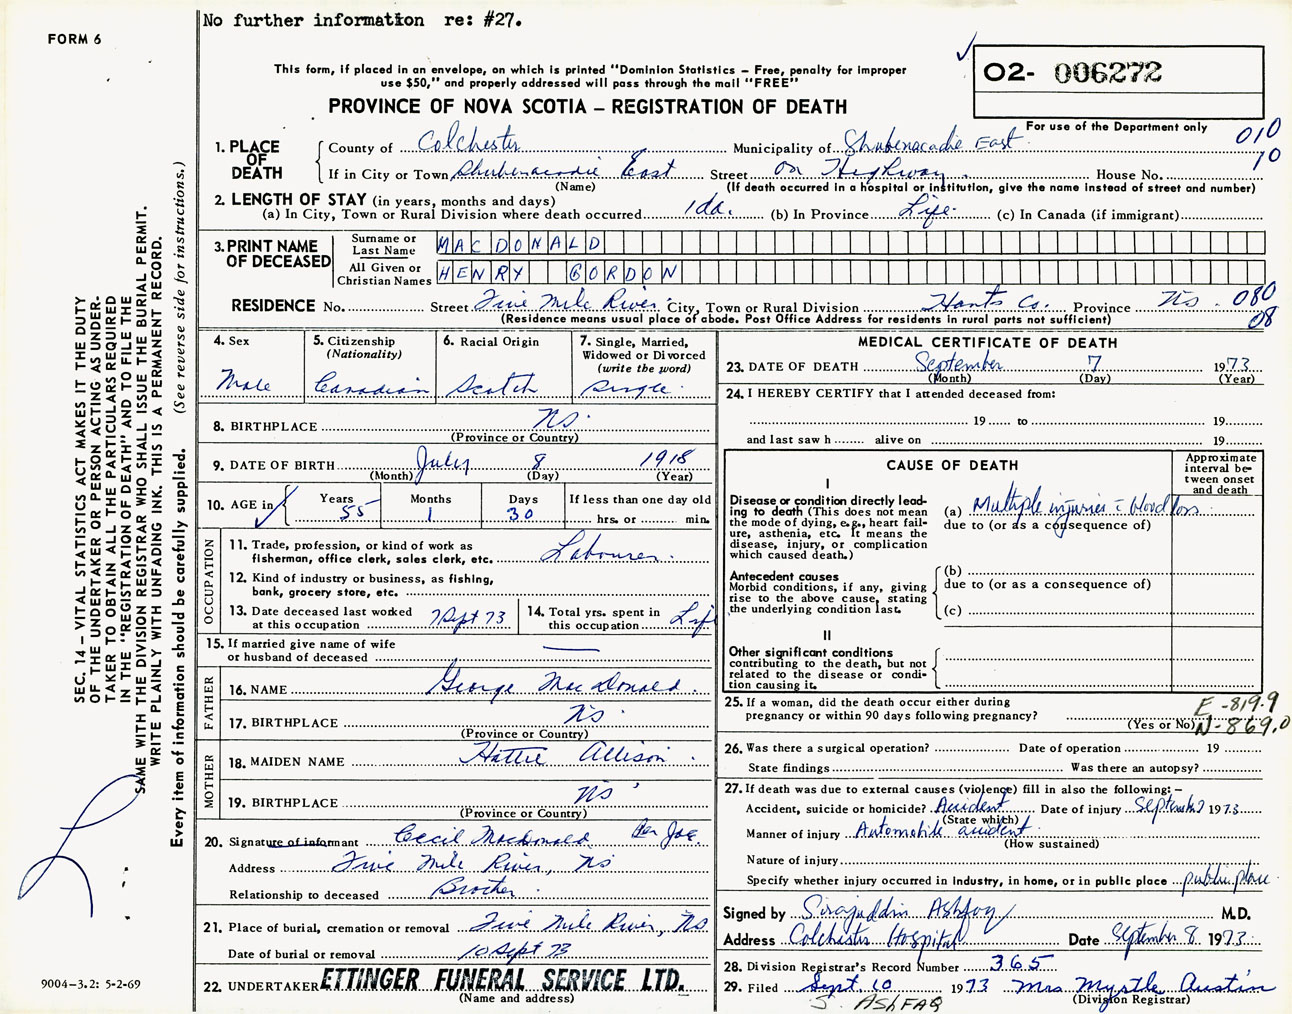 No further information re: #27.
FORM 6
This form, if placed in an envelope, on which is printed "Dominion Statistics – Free, penalty for improper
use $50," and properly addressed will pass through the mail "FREE"
O2- 006272
PROVINCE OF NOVA SCOTIA – REGISTRATION OF DEATH
For use of the Department only
010
10
SEC. 14 – VITAL STATISTICS ACT MAKES IT THE DUTY
OF THE UNDERTAKER OR PERSON ACTING AS UNDER-
TAKER TO OBTAIN ALL THE PARTICULARS REQUIRED
IN THE "REGISTRATION OF DEATH" AND TO FILE THE
SAME WITH THE DIVISION REGISTRAR WHO SHALL ISSUE THE BURIAL PERMIT.
WRITE PLAINLY WITH UNFADING INK. THIS IS A PERMANENT RECORD.
Every item of information should be carefully supplied. (See reverse side for instructions.)
1. PLACE OF DEATH
County of Colchester Municipality of Shubenacadie East
If in City or Town Shubenacadie East Street on Highway House No.
(Name) (If death occurred in a hospital or institution, give the name instead of street and number)
2. LENGTH OF STAY (in years, months and days)
(a) In City, Town or Rural Division where death occurred 1da. (b) In Province Life (c) In Canada (if immigrant)
3. PRINT NAME OF DECEASED
Surname or Last Name MACDONALD
All Given or Christian Names HENRY GORDON
RESIDENCE No. Street Five Mile River City, Town or Rural Division Hants Co. Province NS 080
08
(Residence means usual place of abode. Post Office Address for residents in rural parts not sufficient)
4. Sex
Male
5. Citizenship
(Nationality)
Canadian
6. Racial Origin
Scotch
7. Single, Married,
Widowed or Divorced
(write the word)
Single
8. BIRTHPLACE NS.
(Province or Country)
9. DATE OF BIRTH July 8 1918
(Month) (Day) (Year)
10. AGE in Years 55 Months 1 Days 30 If less than one day old
hrs. or min.
OCCUPATION
11. Trade, profession, or kind of work as
fisherman, office clerk, sales clerk, etc. Labourer.
12. Kind of industry or business, as fishing,
bank, grocery store, etc.
13. Date deceased last worked
at this occupation 7 Sept 73
14. Total yrs. spent in
this occupation Life
15. If married give name of wife
or husband of deceased
FATHER
16. NAME George MacDonald.
17. BIRTHPLACE NS.
(Province or Country)
MOTHER
18. MAIDEN NAME Hattie Allison
19. BIRTHPLACE NS
(Province or Country)
20. Signature of informant Cecil Macdonald Per Joe.
Address Five Mile River, NS
Relationship to deceased Brother
21. Place of burial, cremation or removal Five Mile River, NS
Date of burial or removal 10 Sept 73
22. UNDERTAKER ETTINGER FUNERAL SERVICE LTD.
(Name and address)
9004-3.2: 5-2-69
MEDICAL CERTIFICATE OF DEATH
23. DATE OF DEATH September 7 1973
(Month) (Day) (Year)
24. I HEREBY CERTIFY that I attended deceased from:
19 to 19
and last saw h alive on 19
CAUSE OF DEATH
Approximate
interval be-
tween onset
and death
I
Disease or condition directly lead-
ing to death (This does not mean
the mode of dying, e.g., heart fail-
ure, asthenia, etc. It means the
disease, injury, or complication
which caused death.)
(a) Multiple injuries c blood loss
due to (or as a consequence of)
Antecedent causes
Morbid conditions, if any, giving
rise to the above cause, stating
the underlying condition last.
(b)
due to (or as a consequence of)
(c)
II
Other significant conditions
contributing to the death, but not
related to the disease or condi-
tion causing it.
25. If a woman, did the death occur either during
pregnancy or within 90 days following pregnancy?
(Yes or No)
E-819.9
N-869.0
26. Was there a surgical operation? Date of operation 19
State findings Was there an autopsy?
27. If death was due to external causes (violence) fill in also the following: –
Accident, suicide or homicide? Accident Date of injury September 7 1973
(State which)
Manner of injury Automobile accident
(How sustained)
Nature of injury
Specify whether injury occurred in industry, in home, or in public place public place
Signed by Sirajuddin Ashfaq M.D.
Address Colchester Hospital Date September 8 1973
28. Division Registrar's Record Number 365
29. Filed Sept. 10 1973 Mrs Myrtle Austin
(Division Registrar)
S. ASHFAQ